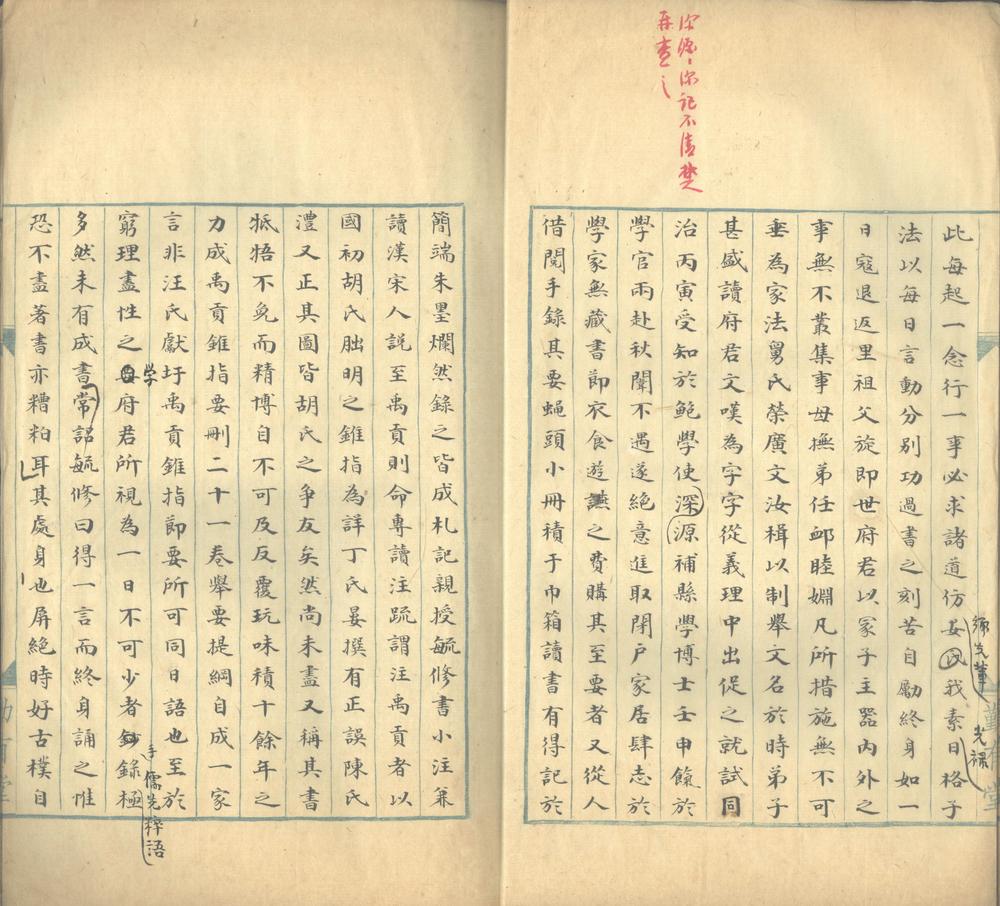 深源、深記不清楚
再查之
此每起一念行一事必求諸道仿姜國我素日格子
鄉先輩
光祿
法以每日言動分別功過書之刻苦自勵終身如一
日寇退返里祖父旋即世府君以冢子主器內外之
事無不叢集事母撫弟任卹睦婣凡所措施無不可
垂為家法舅氏榮廣文汝楫以制舉文名於時弟子
甚盛讀府君文嘆為字字從義理中出促之就試同
治丙寅受知於鮑學使深源補縣學博士壬申餼於
學官兩赴秋闈不遇遂絕意進取閉戶家居肆志於
學家無藏書節衣食遊讌之費購其至要者又從人
借閱手錄其要蝇頭小冊積于巾箱讀書有得記於
簡端朱墨爛然錄之皆成札記親授毓修書小注兼
讀漢宋人說至禹貢則命專讀注疏謂注禹貢者以
國初胡氏朏明之錐指為詳丁氏晏撰有正誤陳氏
澧又正其圖皆胡氏之争友矣然尚未盡又稱其書
牴牾不免而精博自不可及反覆玩味積十餘年之
力成禹貢錐指要刪二十一卷舉要提綱自成一家
言非汪氏獻玗禹貢錐指節要所可同日語也至於
學
窮理盡性之府君所視為一日不可少者錄極
手
儒先粹語
多然未有成書常詔毓修曰得一言而終身誦之惟
恐不盡著書亦糟粕耳其處身也屏絕時好古樸自